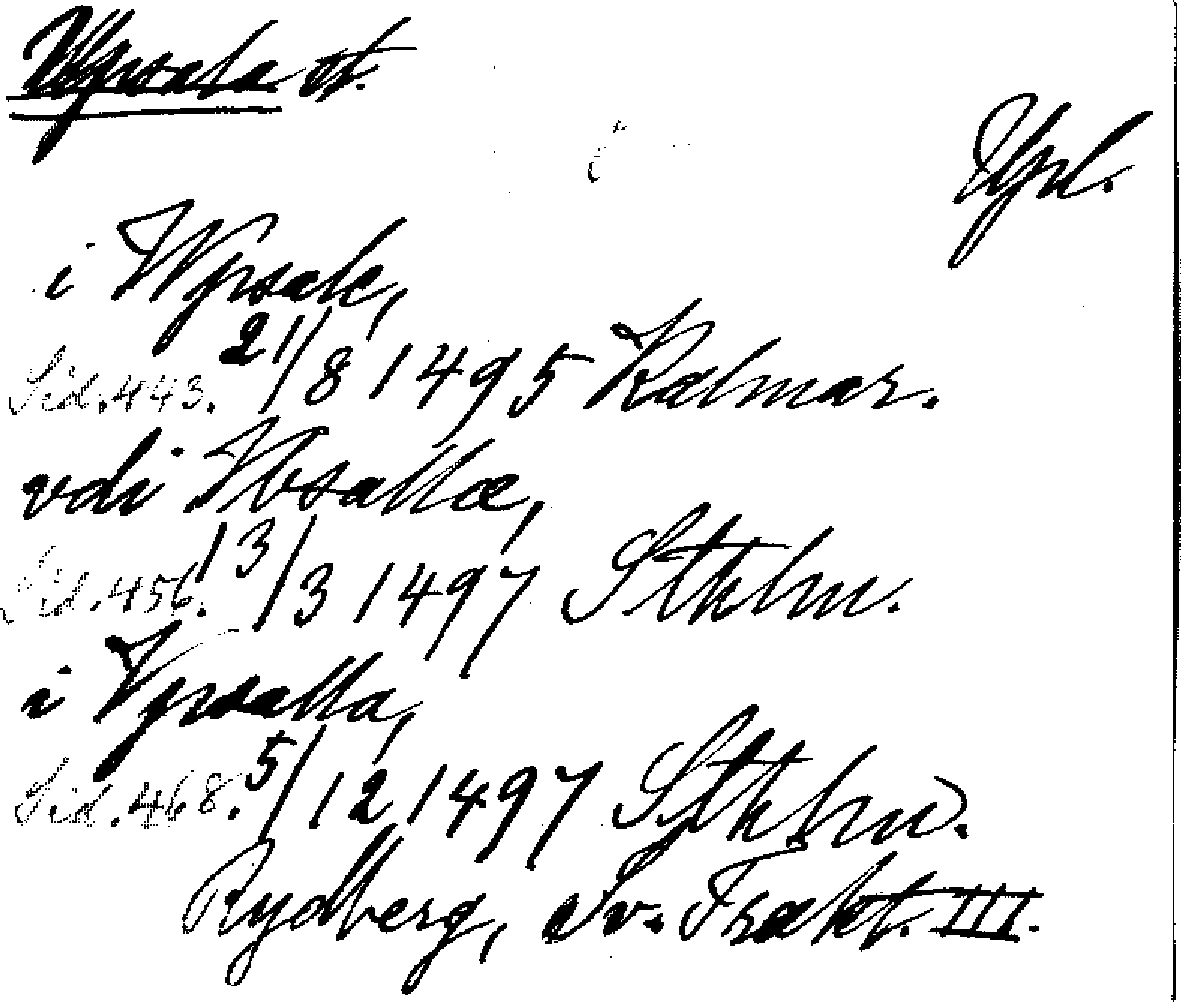 Uppsala st.
Upl.
i Wpsale,
Sid. 443. 21/8 1495 Kalmar.
vdi Vbsallæ,
Sid. 456. 13/3 1497 Sthlm.
i Vpsalla,
Sid. 468. 5/12 1497 Sthlm.
Rydberg, Sv. Trakt. III.